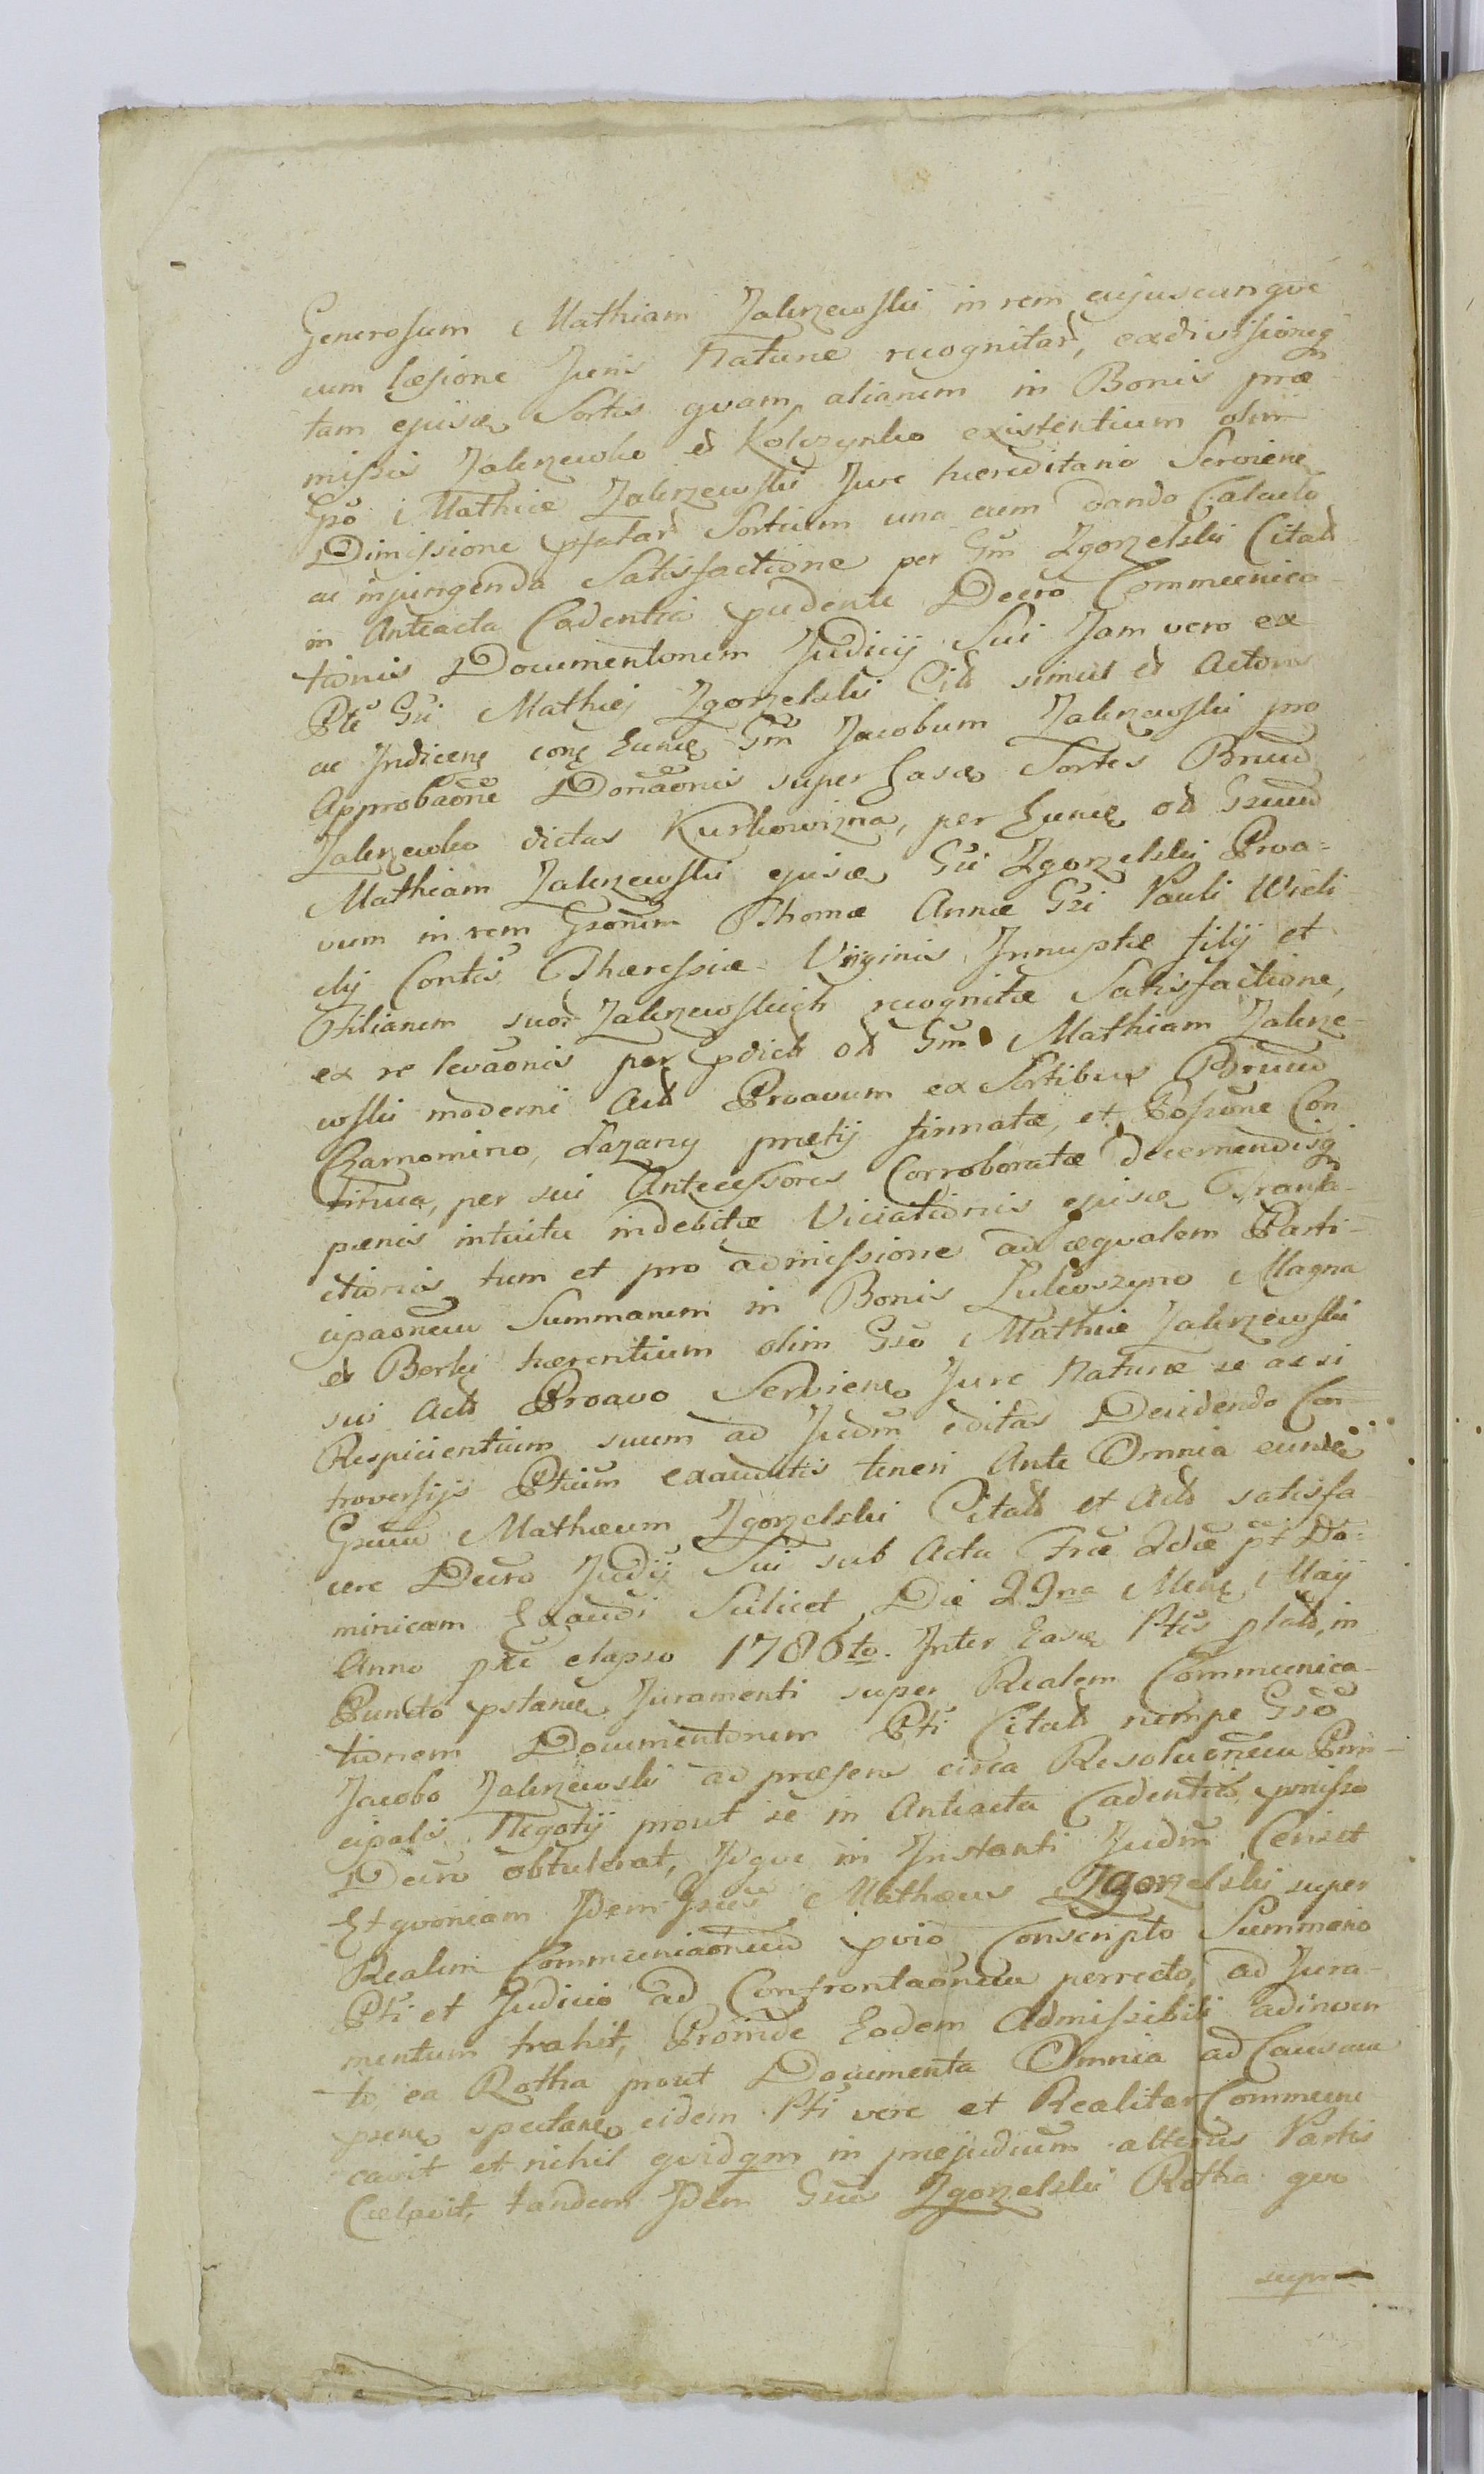 Generosum Mathiam Zakrzewski in rem cujuscunque
cum læsione Juris Naturæ recognitar, exdivisioneq
tam ejusd Sortis quam aliarum in Bonis præ
missis Zakrzewko et Kolczynko existentium olim
Gso Mathiæ Zakrzewski Jure hæreditario Servien
Dimissione pfatar Sortium una cum dando Calculo
ac injungenda Satisfactione per Gm Zgorzelski Citat
in Anteacta Cadentia pudente Decro Communica
tionis Documentorum Judicij Sui Jam vero ex
Pte Gsi Mathiej Zgorzelski Cit simul et Actoris
ac Indicen con Eunde Gm Jacobum Zakrzewski pro
Approbaone Donaonis super Easd Sortes Bnud
Zakrzewko dictas Kurkowizna, per Eund ol Gnud
Mathiam Zakrzewski ejusd Gsi Zgorzelski Proa=
vum in rem Gsorum Thomæ Annæ Gsi Pauli Wieli
cky Contis Thæressiæ Virginis Innuptæ filij et
Filiarum suor Zakrzewskich recognitæ Satisfactione,
ex re levaonis per pdict ol Gm Mathiam Zakrze=
wski moderni Act Proavum ex Sortibus Bonud
Czarnomino, Łazany prætij firmatæ, et Possone Con
tinua, per sui Antecessores Corroboratæ decernendisq
pænis intuitu indebitæ Viciationis ejusd Transa=
ctionis tum et pro admissione ad æqualem Parti=
cipaonem Summarum in Bonis Luboszyno Magna
et Berki hærentium olim Gso Mathiæ Zakrzewski
sui Act Proavo Servien Jure Naturæ se ac si
Respicientium suum ad Judm editas Decidendo Con=
troversijs Ptium exauditis teneri Ante Omnia eunde
Gnum Mathæum Zgorzelski Citat et Act satisfa
cere Decro Judij Sui sub Actu Fræ 2dæ pt Do=
minicam Exaudi Scilicet Die 29na Mens Maij
Anno pte elapso 1786to. Inter Easd Ptes plato, in
Puncto pstand Juramenti super Realem Communica=
tionem Documentorum Pti Citat nempe Gso
Jacobo Zakrzewski ad præsens circa Resoluonem Prin=
cipalis Negotij prout se in Anteacta Cadentia pmisso
Decro obtulerat, Idque in Instanti Judm Censet
Et quoniam Idem Gsus Mathæus Zgorzelski super
Realem Communicaonem pvio Conscripto Summario
Pti et Judicio ad Confrontaonem perrecto, ad Jura=
mentum trahit, Proinde Eodem Admissibili adinven
to, ea Rotha prout Documenta Omnia ad Causam
psen spectan eidem Pti vere et Realiter Commune
cavit et nihil quidqm in præjudium alterius Partis
Cælavit, tandem Idem Gsus Zgorzelski Rotha qua
supra